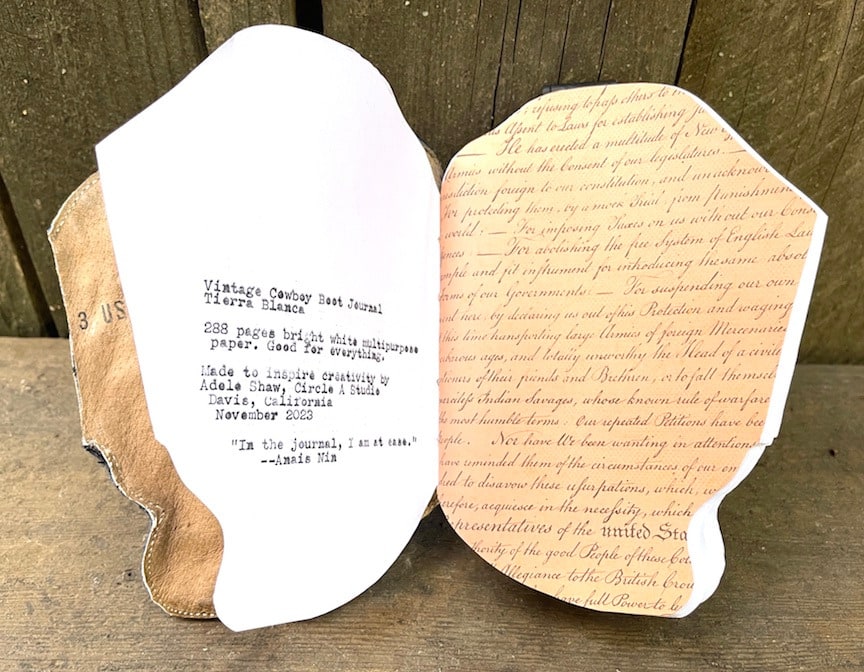 3 US
Vintage Cowboy Boot Journal
Tierra Blanca
288 pages bright white multipurpose
paper. Good for everything.
Made to inspire creativity by
Adele Shaw, Circle A Studio
Davis, California
November 2023
"In the journal, I am at ease."
--Anais Nin
; refusing to pass others to
Assent to Laws for establishing
— He has erected a multitude of New
Armies without the Consent of our legislatures. —
foreign to our constitution, and unacknow
For protecting them, by a mock Trial, from punishmen
world: — For imposing Taxes on us without our Cons
— For abolishing the free System of English La
and fit instrument for introducing the same absol
of our Governments: — For suspending our own
here, by declaring us out of his Protection and waging
this time transporting large Armies of foreign Mercenarie
ages, and totally unworthy the Head of a civili
of their friends and Brethren, or to fall themsel
Indian Savages, whose known rule of warfare
most humble terms: Our repeated Petitions have bee
people. Nor have We been wanting in attentions
have reminded them of the circumstances of our em
to disavow these usurpations, which, w
, acquiesce in the necessity, which
representatives of the united Sta
of the good People of these Col
Allegiance to the British Crow
have full Power to le